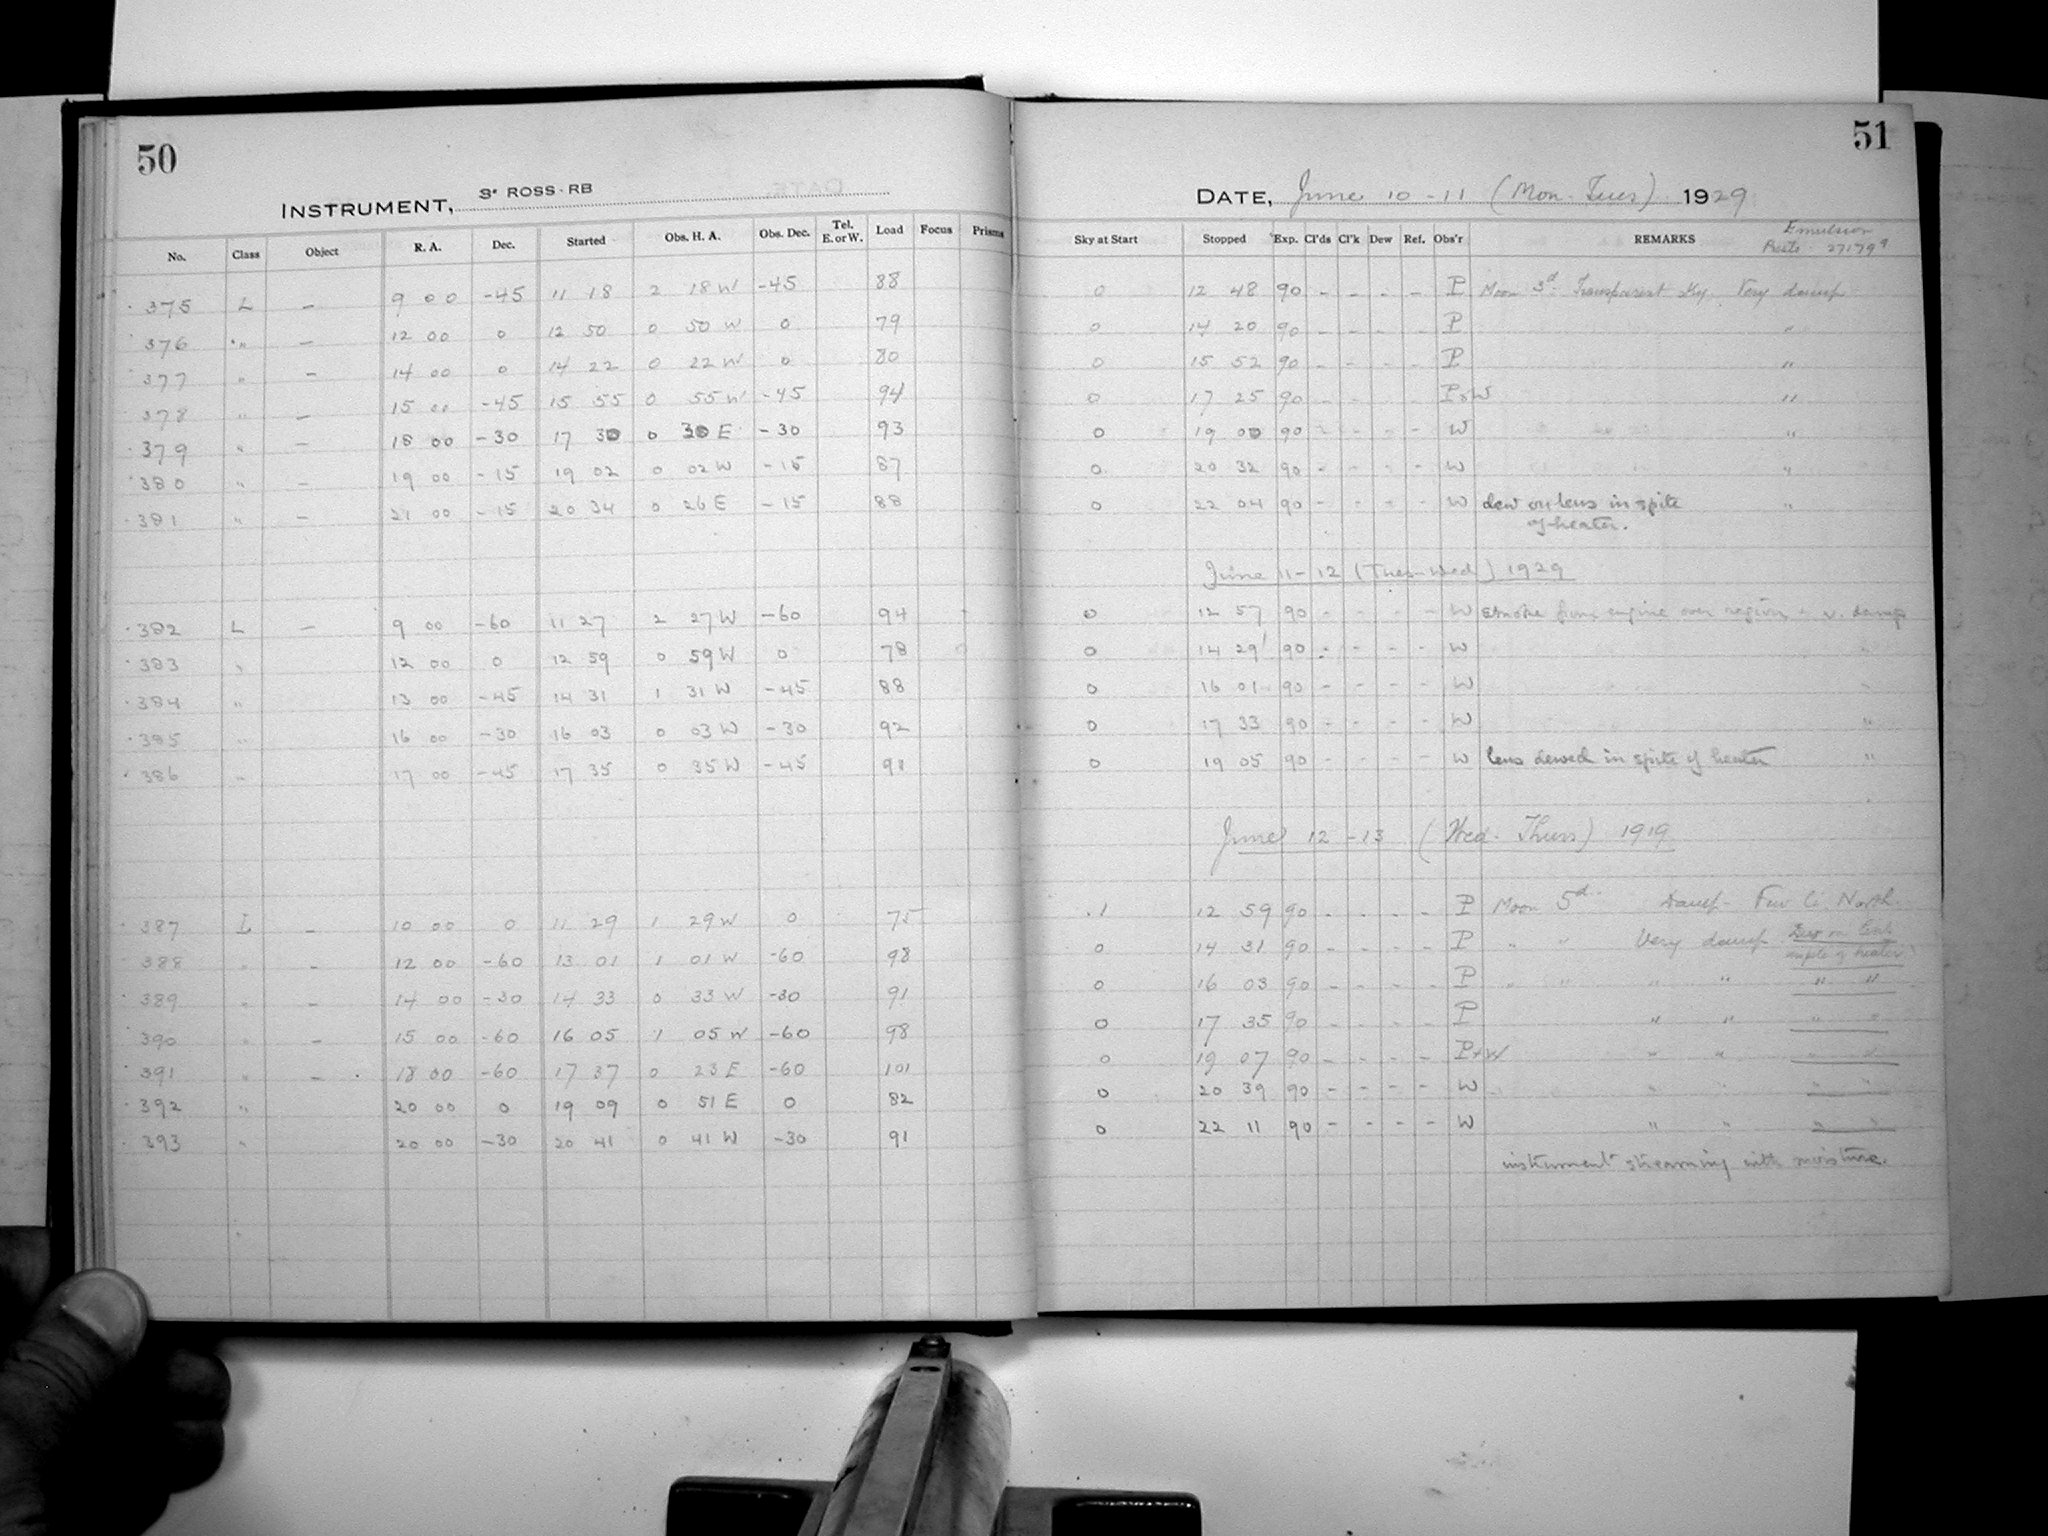 50
INSTRUMENT, 3" ROSS-RB
No. Class Object R. A. Dec. Started Obs. H. A. Obs. Dec. Tel. E. or W. Load Focus Prisms
375 L — 9 00 -45 11 18 2 18 W -45 88
376 " — 12 00 0 12 50 0 50 W 0 79
377 " — 14 00 0 14 22 0 22 W 0 80
378 " — 15 00 -45 15 55 0 55 W -45 94
379 " — 18 00 -30 17 30 0 30 E -30 93
380 " — 19 00 -15 19 02 0 02 W -15 87
381 " — 21 00 -15 20 34 0 26 E -15 88
382 L — 9 00 -60 11 27 2 27 W -60 94
383 " 12 00 0 12 59 0 59 W 0 78
384 " 13 00 -45 14 31 1 31 W -45 88
385 " 16 00 -30 16 03 0 03 W -30 92
386 " 17 00 -45 17 35 0 35 W -45
387 L — 10 00 0 11 29 1 29 W 0 75
388 " — 12 00 -60 13 01 1 01 W -60 98
389 " — 14 00 -30 14 33 0 33 W -30 91
390 " — 15 00 -60 16 05 1 05 W -60 98
391 " — 18 00 -60 17 37 0 23 E -60 101
392 " 20 00 0 19 09 0 51 E 0 82
393 " 20 00 -30 20 41 0 41 W -30 91
51
DATE, June 10-11 (Mon-Tues) 1929
Sky at Start Stopped Exp. Cl'ds Cl'k Dew Ref. Obs'r REMARKS Emulsion
0 12 48 90 - - - - P Moon 3d. Transparent sky. Very damp
0 14 20 90 - - - - P "
0 15 52 90 - - - - P "
0 17 25 90 - - - - P+W "
0 19 00 90 - - - - W "
0 20 32 90 - - - - W "
0 22 04 90 - - - - W dew on lens in spite "
of heater.
June 11-12 (Tues-Wed) 1929
0 12 57 90 - - - - W smoke from engine over region + v. damp
0 14 29 90 - - - - W "
0 16 01 90 - - - - W "
0 17 33 90 - - - - W "
0 19 05 90 - - - - W lens dewed in spite of heater "
June 12-13 (Wed-Thurs) 1919
.1 12 59 90 - - - - P Moon 5d. Damp - Few Ci. North.
0 14 31 90 - - - - P " " Very damp Dew on
inspite of heater
0 16 03 90 - - - - P " " " " " "
0 17 35 90 - - - - P " " " "
0 19 07 90 - - - - P+W " " " "
0 20 39 90 - - - - W " " " "
0 22 11 90 - - - - W " " " "
instrument streaming with moisture.